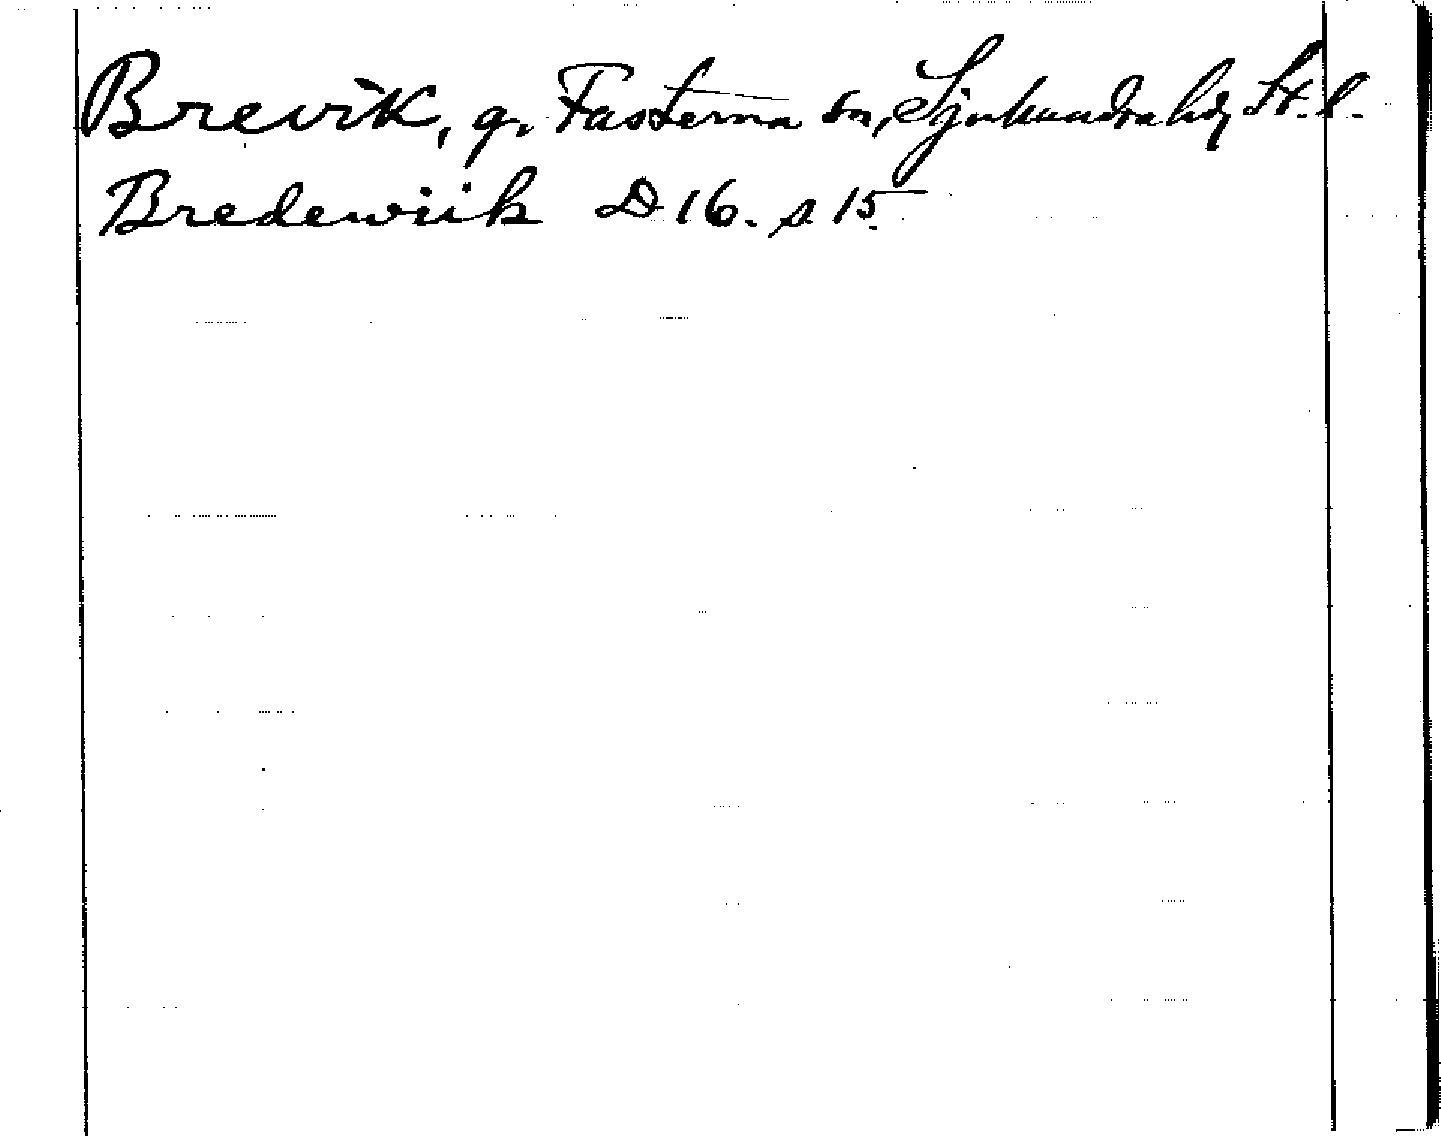 Brevik, g. Fasterna sn, Sjuhundra hd, St. l.
Bredewiik D 16. s 15.